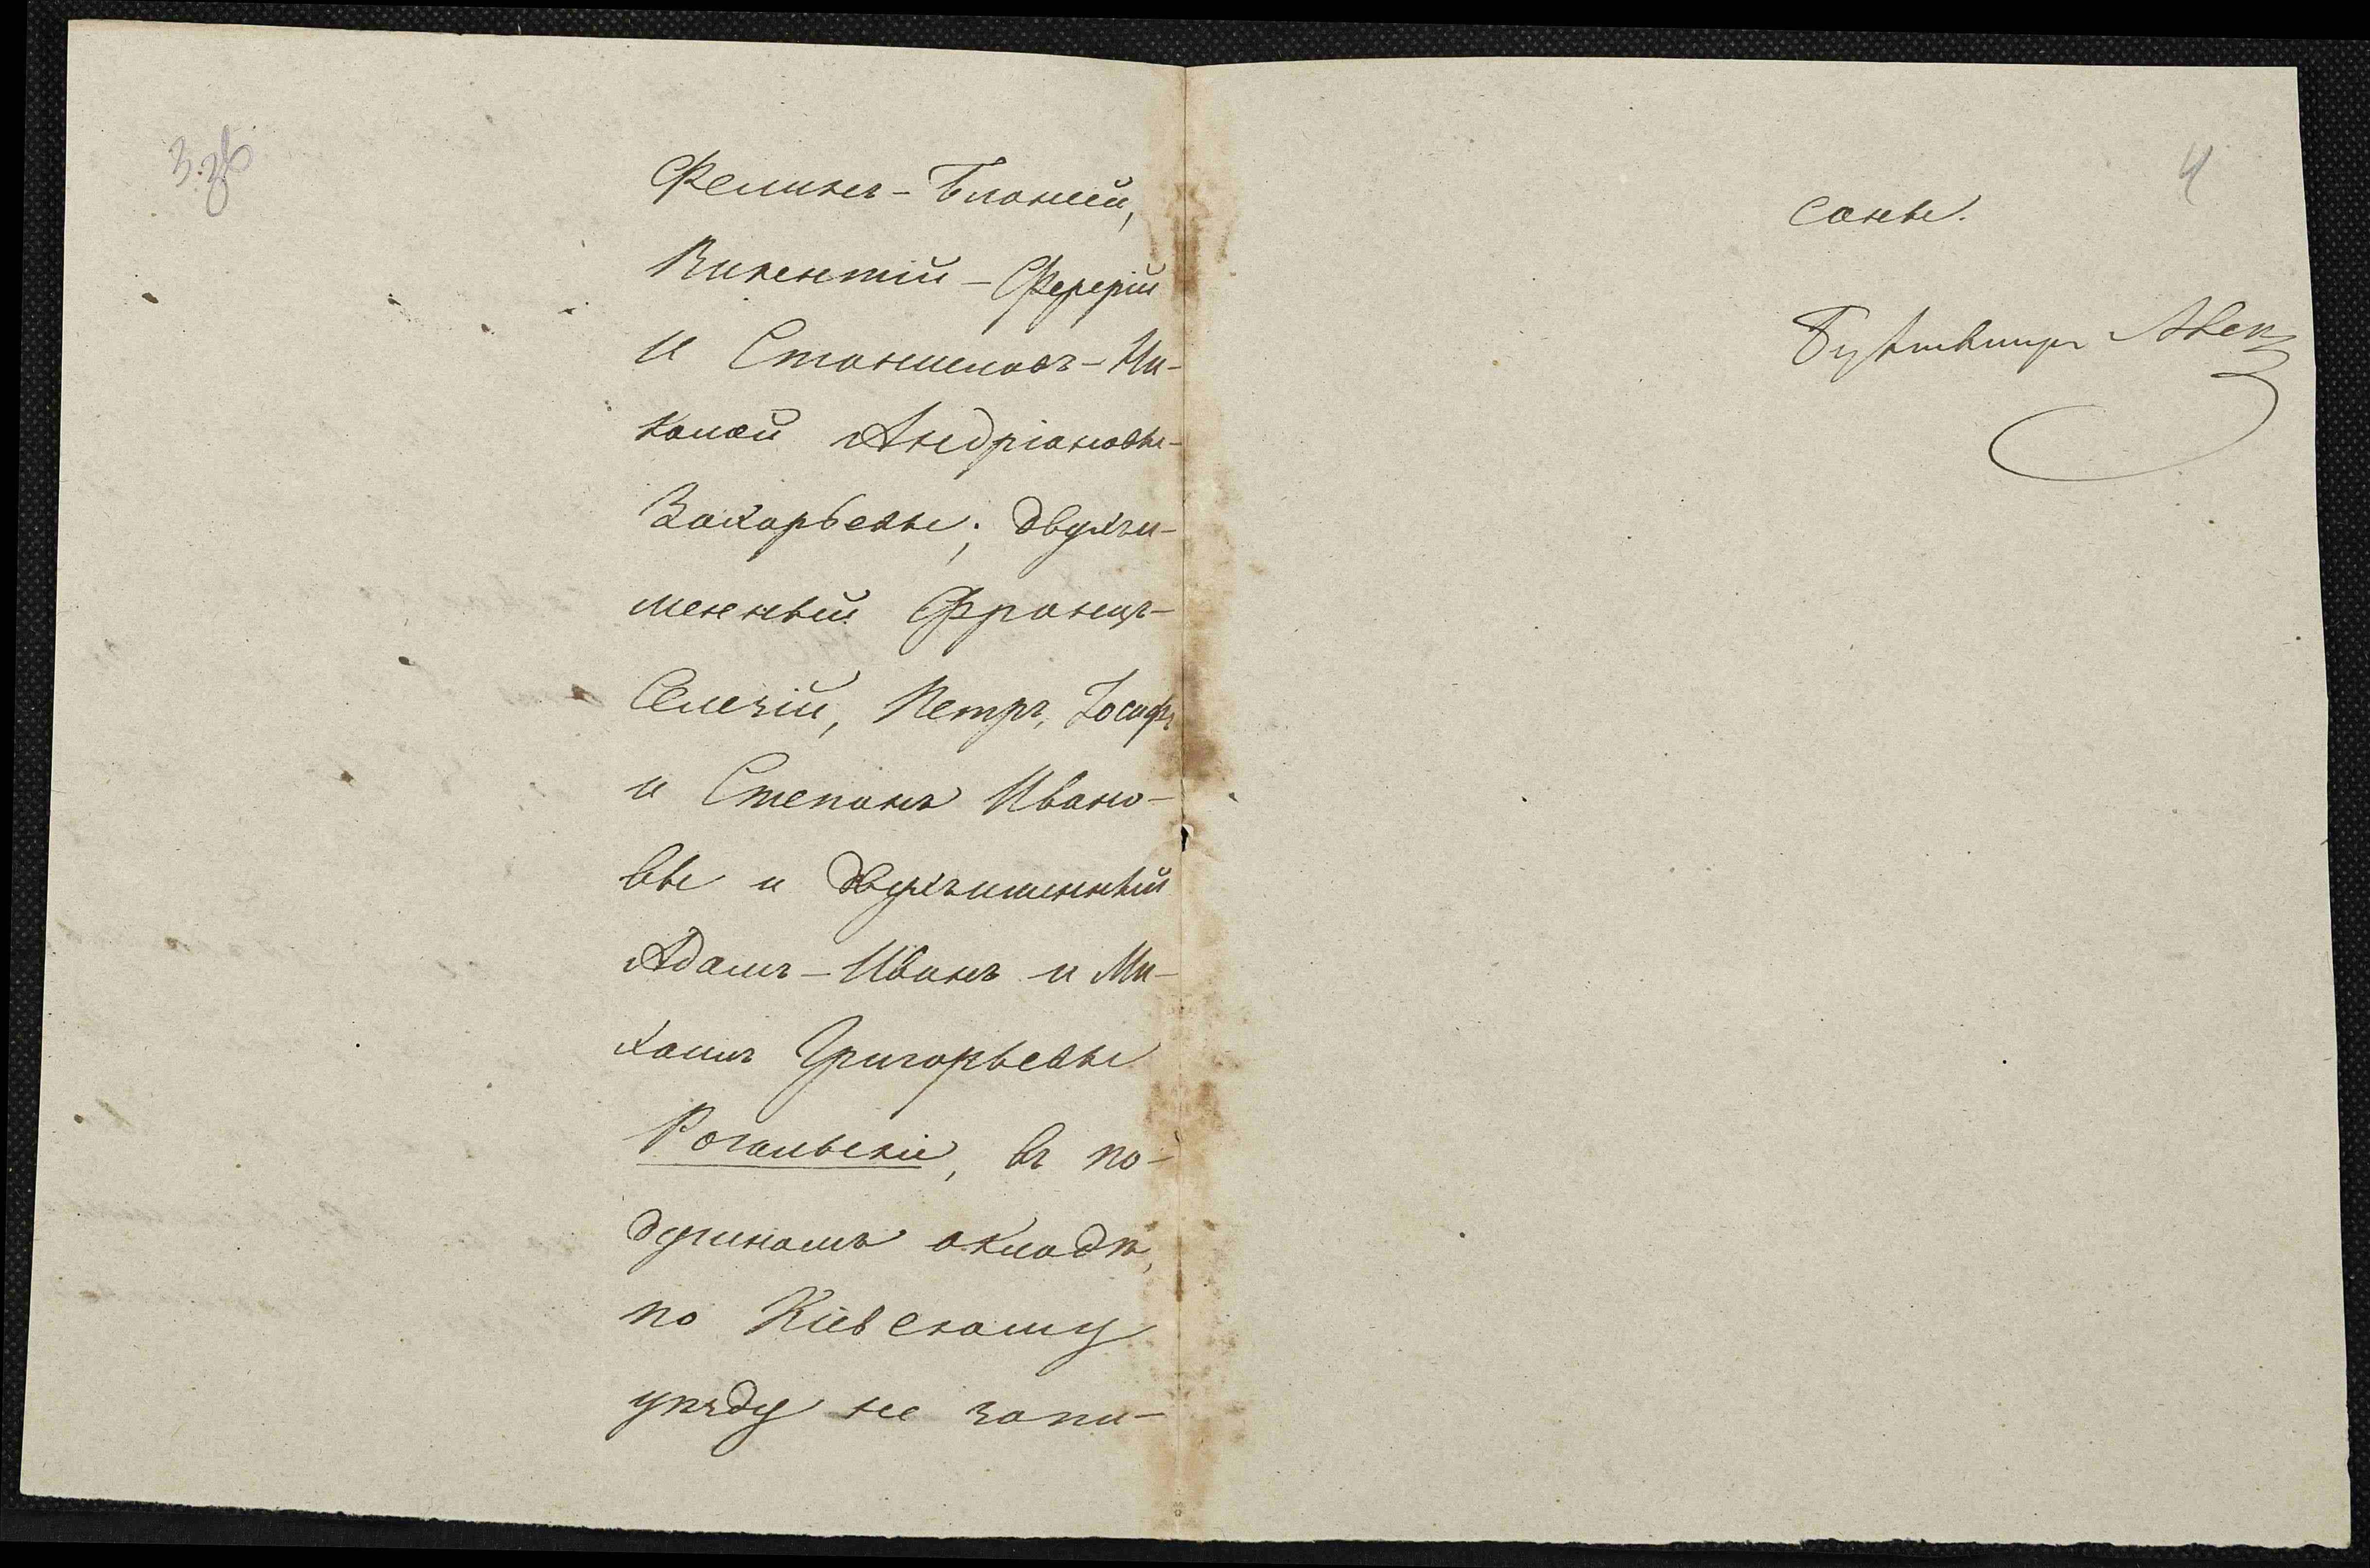 3. зв
Феликсъ-Блажей,
Викентій-Ферерій
и Станиславъ-Ни-
колай Андріановы-
Захарьевы; двухъи-
менный Францъ-
Салезій, Петръ, Іосифъ
и Степанъ Ивано-
вы и двухъименный
Адамъ-Иванъ и Ми-
хаилъ Григорьевы
Рогальскіе, въ по-
душномъ окладѣ,
по Кіевскому
уѣзду не запи-
4
саны.
Бухгалтеръ